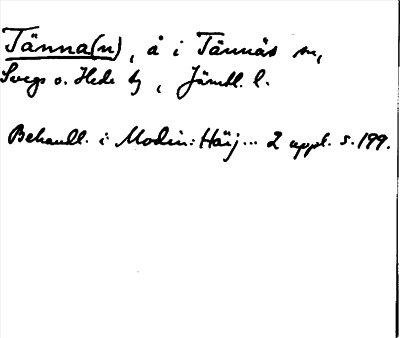 Tänna(n), å i Tännäs sn,
Svegs o. Hede tg, Jämtl. l.
Behandl. i Modin: Härj... 2 uppl. s. 199.